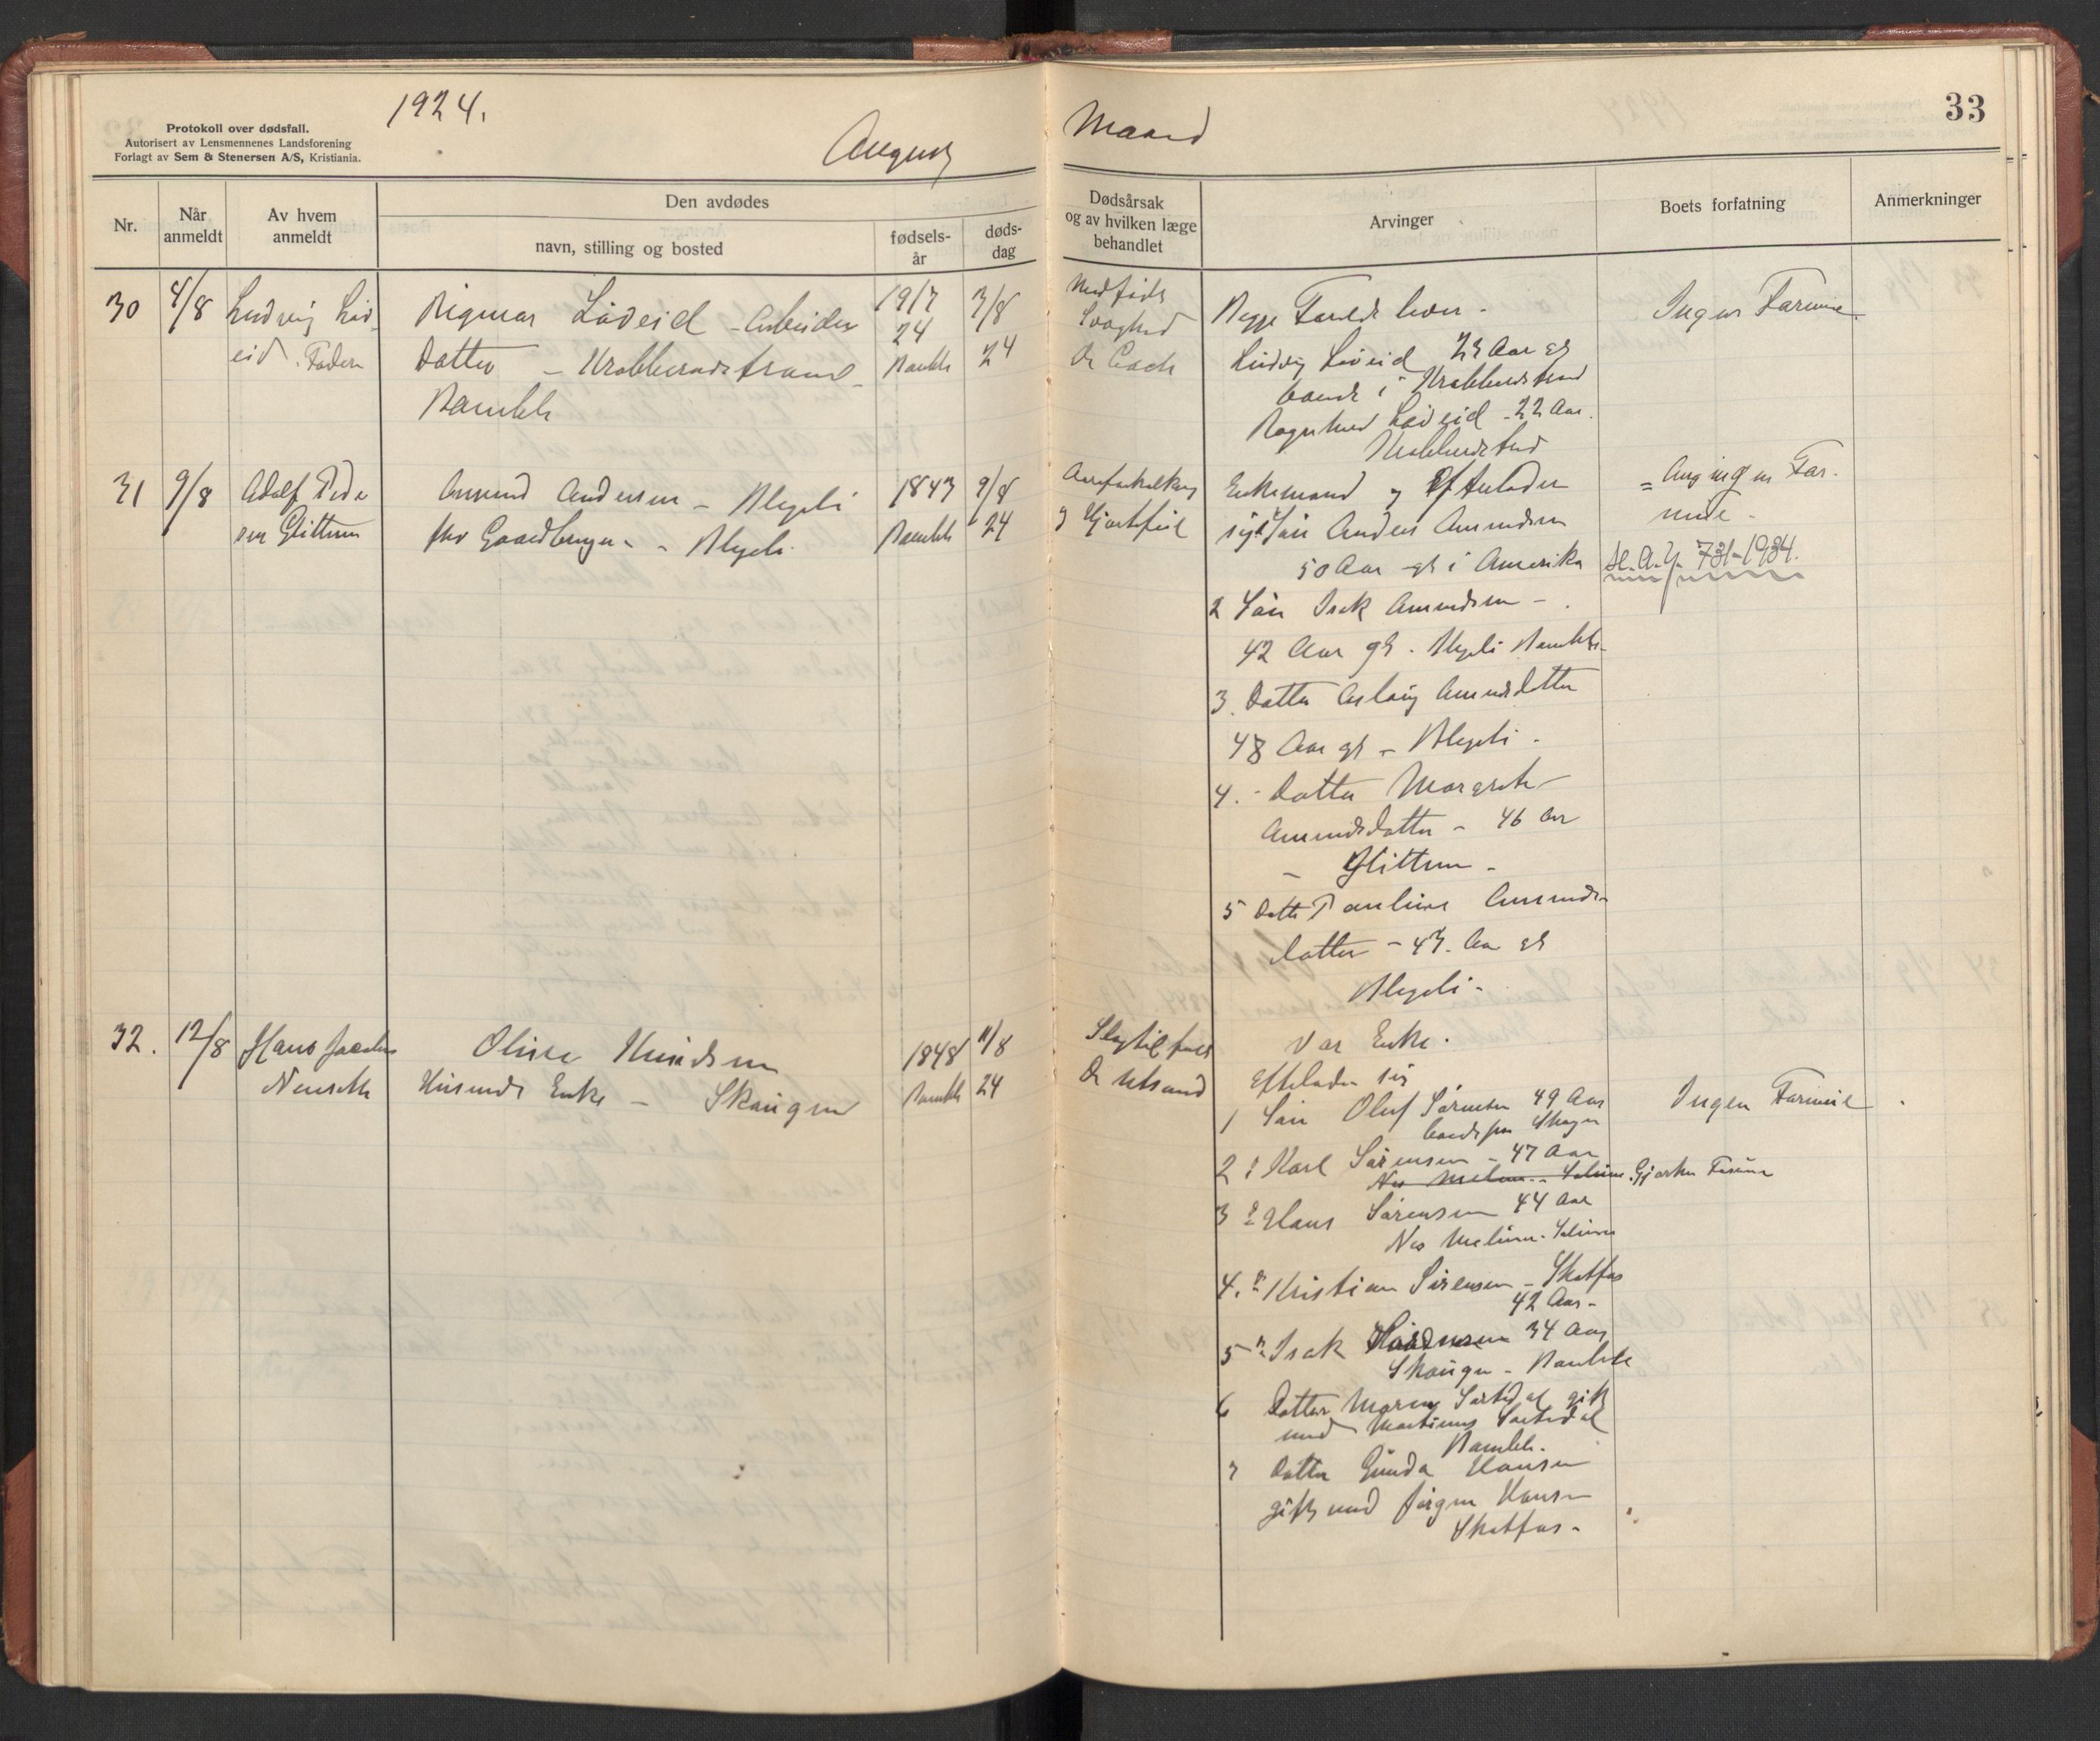 1924.
Protokoll over dødsfall.
Autorisert av Lensmennenes Landsforening
Forlagt av Sem & Stenersen A/S, Kristiania.
August
Maaned
33
Nr.
Når anmeldt
Av hvem anmeldt
Den avdødes
navn, stilling og bosted
fødsels-år
døds-dag
Dødsårsak og av hvilken læge behandlet
Arvinger
Boets forfatning
Anmerkninger
30 4/8 Ludvig Løv-
eid. Faderen
Rigmor Løveid - Arbeider
Datter - Krabberødstrand
Bamble
19/7
24
Bamble
3/8
24
Medfødt
Svaghed
Dr
Begge Forældre lever -
Ludvig Løveid 23 Aar gl
boende i Krabberødstrand
Ragnhild Løveid - 22 Aar.
Krabberødstrand
Ingen Formue
31 9/8 Adolf Peder
sen Glittum
Amund Andersen -
fhv Gaardbruger -
1843
Bamble
9/8
24
Aareforkalkning
og Hjertefeil
Enkemand og Efterlader
sig 1 Søn Anders Amundsen
50 Aar gl i Amerika
2 Søn Isak Amundsen -
42 Aar gl. Bamble
3. Datter Aslaug Amundsdatter
48 Aar gl -
4. - Datter Margrete
Amundsdatter - 46 Aar
- Glittum -
5 Datter Pauline Amunds-
datter - 43. Aar gl
= Ang ingen For-
mue -
731-1934.
32. 12/8 Hans Jacobs
Neuseth
Oline Knudsen
Enke - Skaugen
1848
Bamble
11/8
24
Slagtilfæld
Dr Utsond
Var Enke.
Efterlader sig
1 Søn Oluf Sørensen 49 Aar
boende paa Skaugen
2 " Karl Sørensen - 47 Aar
Nes Melum - Solum
3 " Hans Sørensen 44 Aar
Nes Melum - Solum
4. " Kristian Sørensen - Skotfos
42 Aar -
5 " Isak Sørensen 34 Aar
Skaugen - Bamble
6 Datter Maren gift
med Martinius
Bamble.
7 Datter Gunda Hansen
gift med Jørgen Hansen
Skotfos -
Ingen Formue